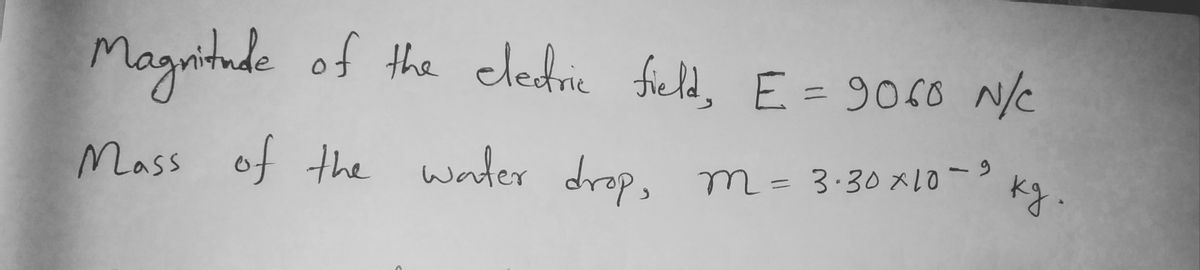 Magnitude of the electric field, E = 9060 N/C
Mass of the water drop, m = 3.30 × 10⁻⁹ kg.